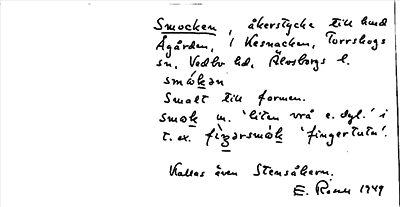 Smocken, åkerstycke till hmd
Ågården, i Kesnacken, Torrskogs
sn, Vedbo hd, Älvsborgs l.
smókən
Smalt till formen.
smok m. 'liten vrå e. dyl.' i
t. ex. fìŋərsmók 'fingertuta'.
Kallas även Stensåkern.
E. 1949